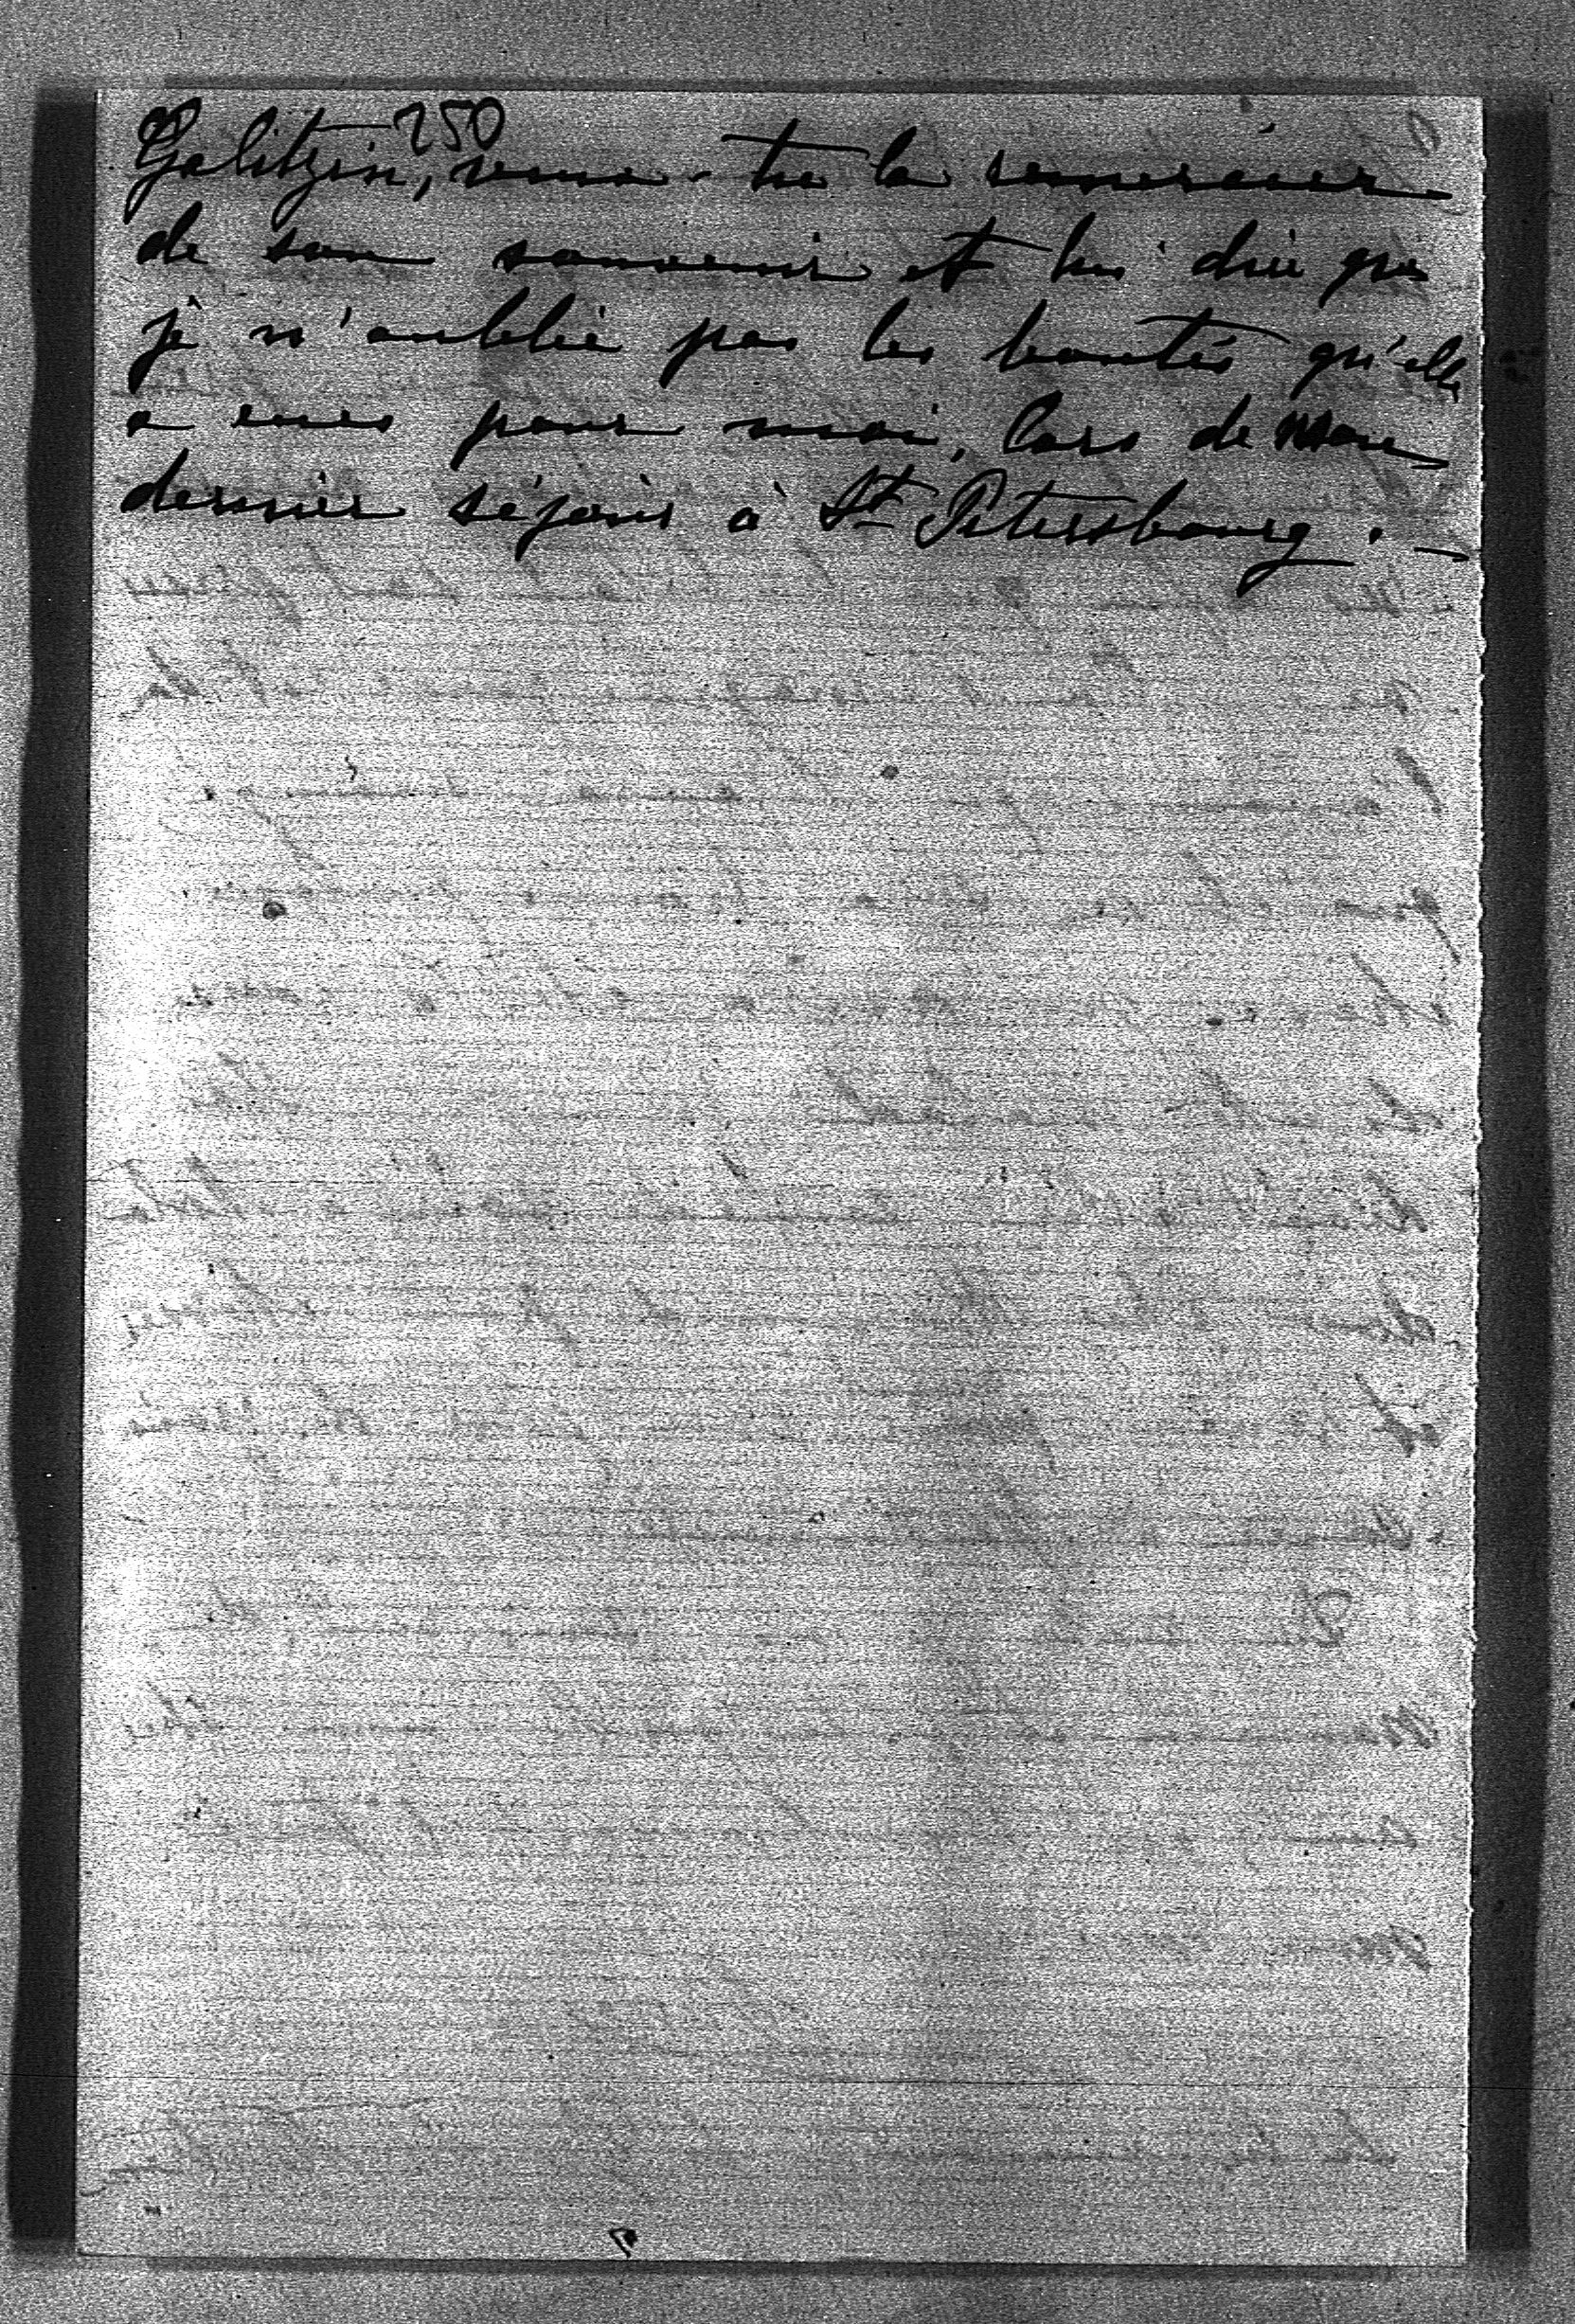 250
Galitzin, veux-tu la remercier
de son souvenir et lui dire que
je n'oublie pas les bontés qu'elle
a eues pour moi, lors de mon
dernier séjour à St Petersbourg. —